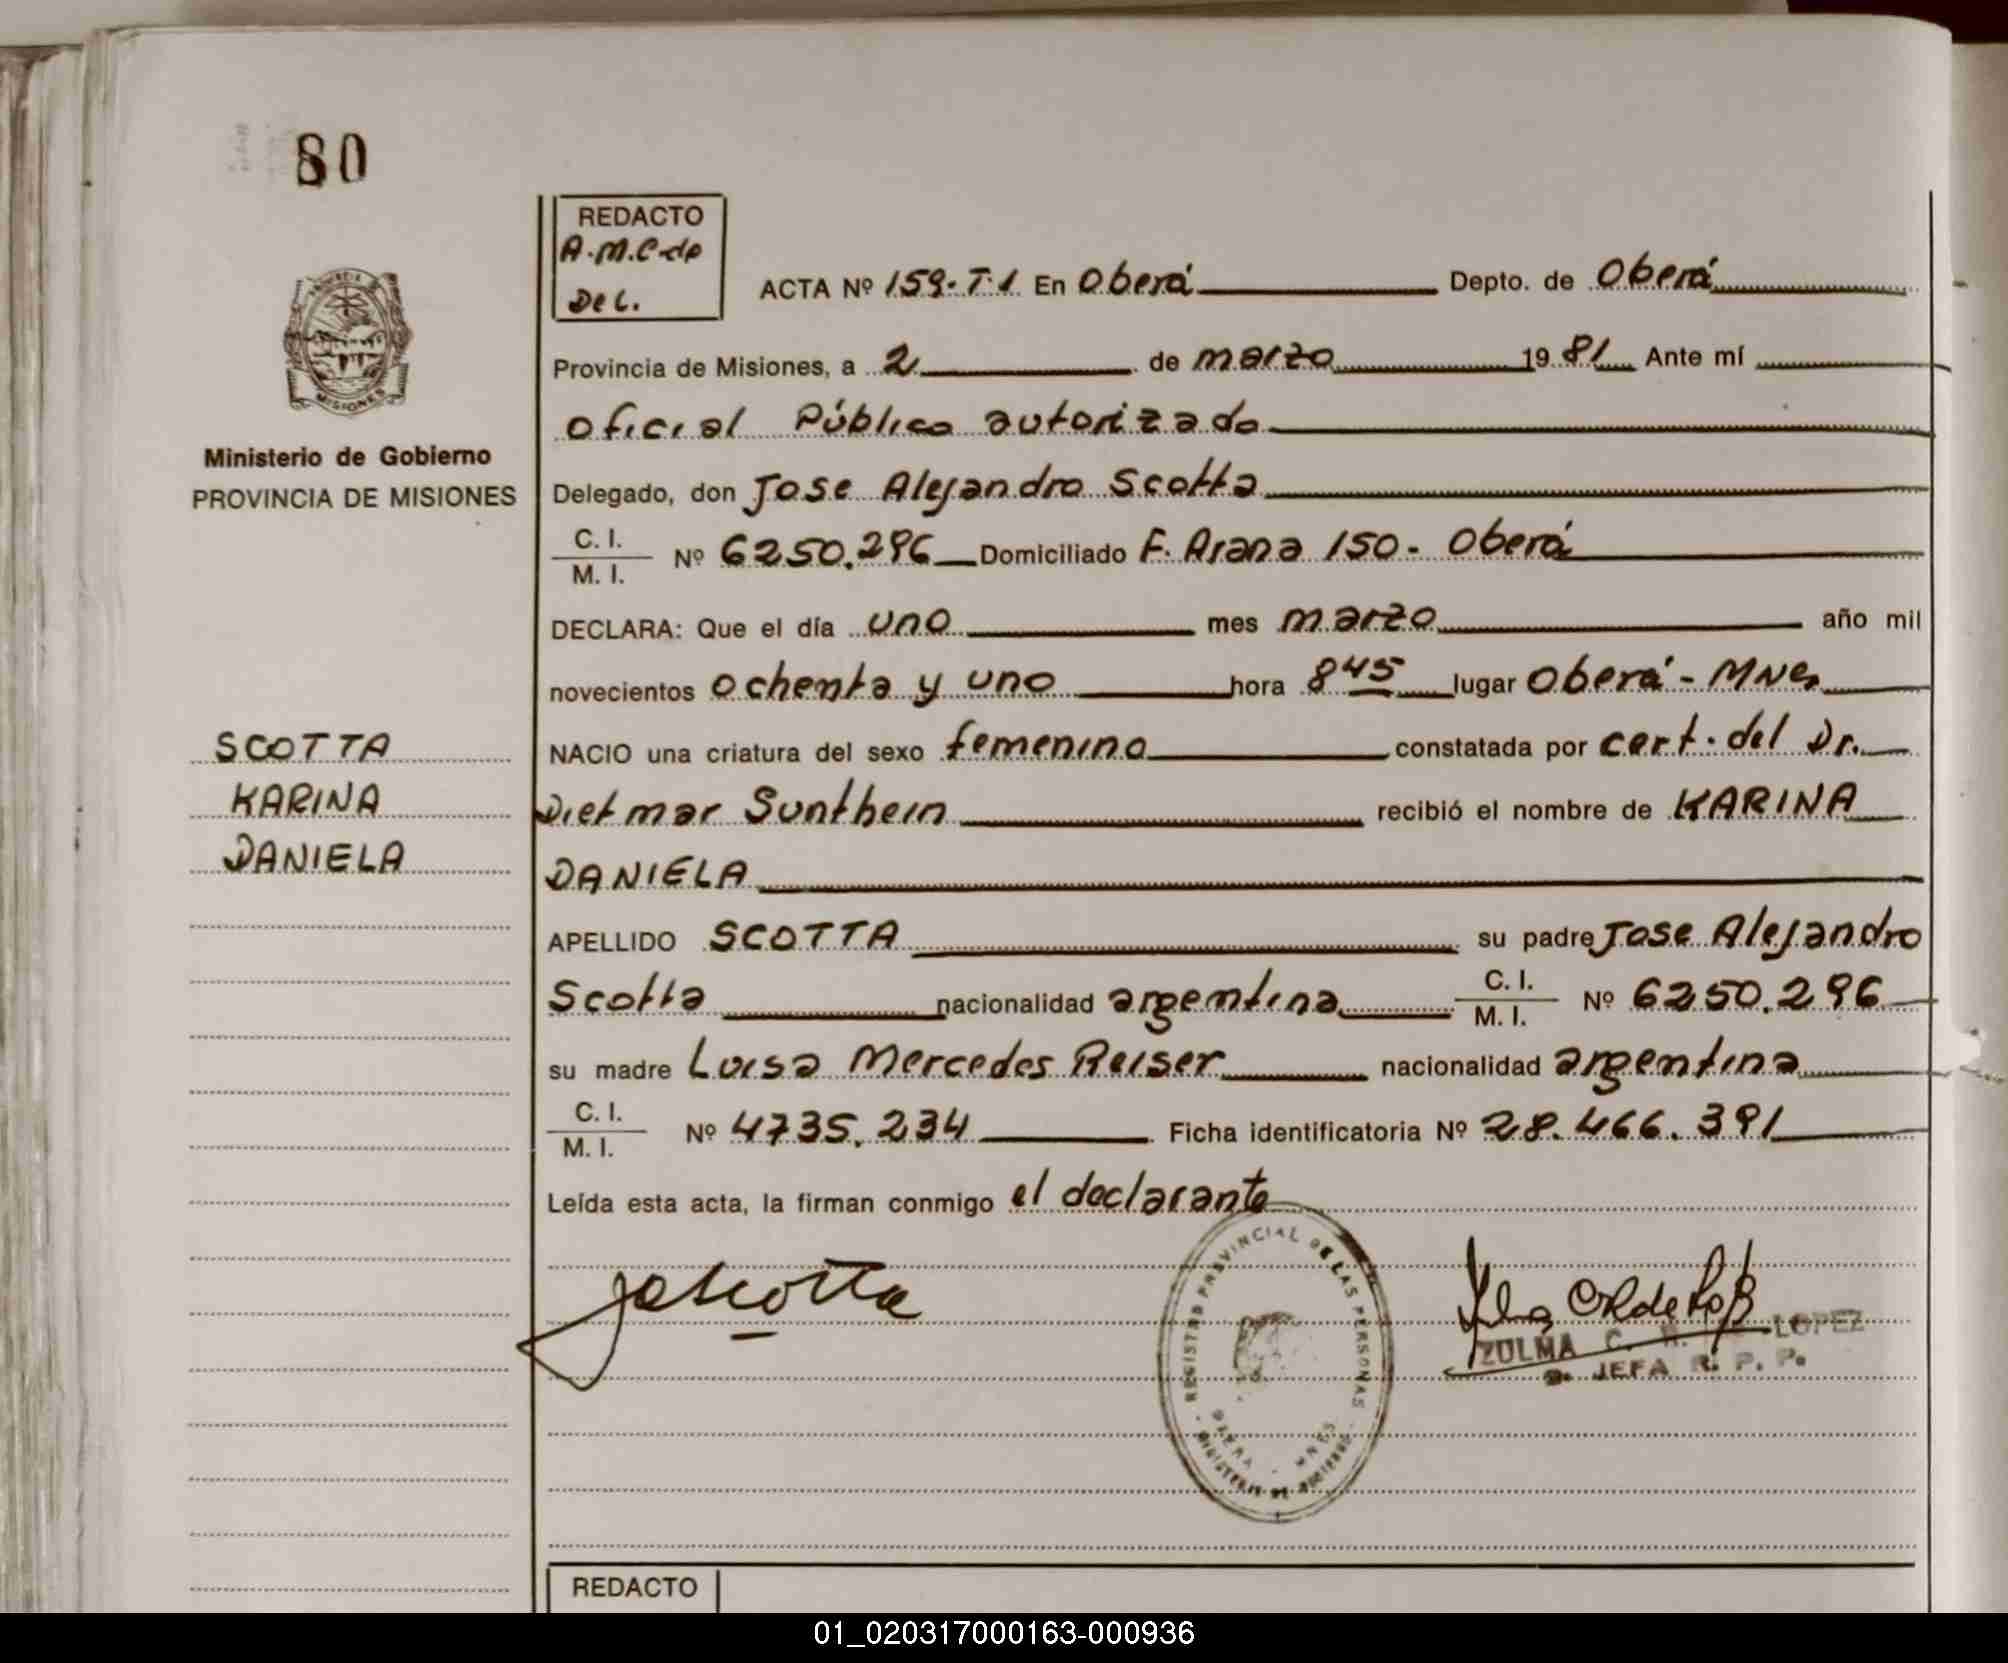 80
REDACTO
A.M.C de
Del.
ACTA Nº 159-T.1 En Oberá Depto. de Oberá
Provincia de Misiones, a 2 de marzo 1981 Ante mí
Oficial Público autorizado
Ministerio de Gobierno
PROVINCIA DE MISIONES
Delegado, don Jose Alejandro Scotta
C. I.
M. I. Nº 6250.296 Domiciliado F. Arana 150 - Oberá
DECLARA: Que el día uno mes marzo año mil
novecientos ochenta y uno hora 8 45 lugar Oberá - Mnes
SCOTTA
KARINA
DANIELA
NACIO una criatura del sexo femenino constatada por cert. del Dr.
Dietmar Sunthein recibió el nombre de KARINA
DANIELA
APELLIDO SCOTTA su padre Jose Alejandro
Scotta nacionalidad argentina C. I.
M. I. Nº 6250.296
su madre Luisa Mercedes Reiser nacionalidad argentina
C. I.
M. I. Nº 4735.234 Ficha identificatoria Nº 28.466.391
Leída esta acta, la firman conmigo el declarante
REGISTRO PROVINCIAL DE LAS PERSONAS
OBERA - MNES
MINISTERIO DE GOBIERNO
ZULMA C. R. LOPEZ
JEFA R. P. P.
REDACTO
01_020317000163-000936